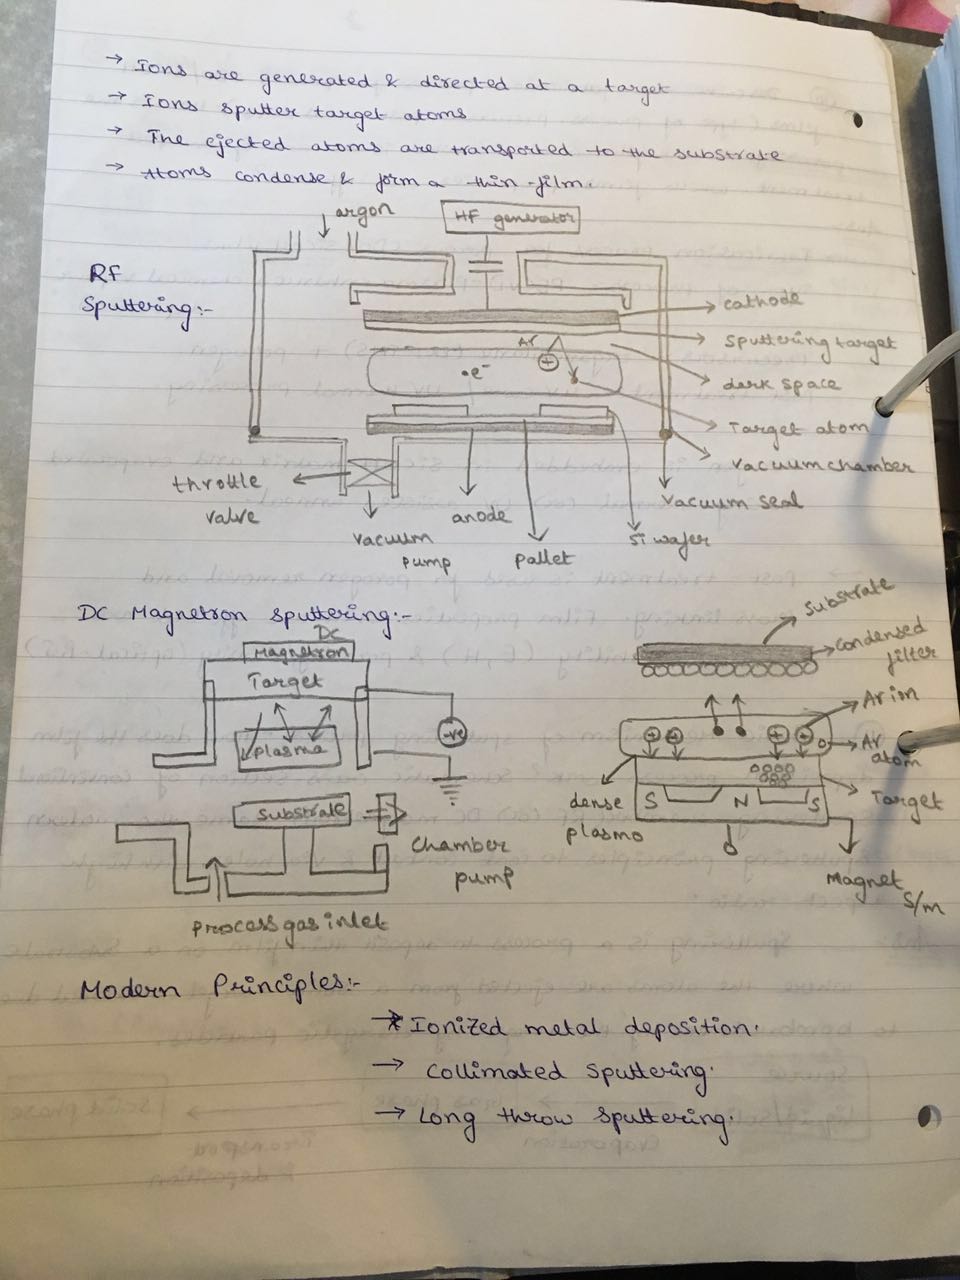 → Ions are generated & directed at a target
→ Ions sputter target atoms
→ The ejected atoms are transported to the substrate
→ Atoms condense & form a thin-film.
argon
HF generator
RF
Sputtering:-
cathode
Sputtering target
Ar
+
dark space
•e⁻
Target atom
vacuum chamber
throttle
valve
vacuum seal
anode
vacuum
pump
pallet
Si wafer
DC Magnetron sputtering:-
DC
Magnetron
Target
Plasma
-ve
Substrate
chamber
pump
process gas inlet
Substrate
condensed
filter
Ar ion
+ + + +
Ar
atom
dense
plasmo
S N S
Target
Magnet
S/m
Modern Principles:-
→ Ionized metal deposition.
→ collimated sputtering.
→ Long throw sputtering.